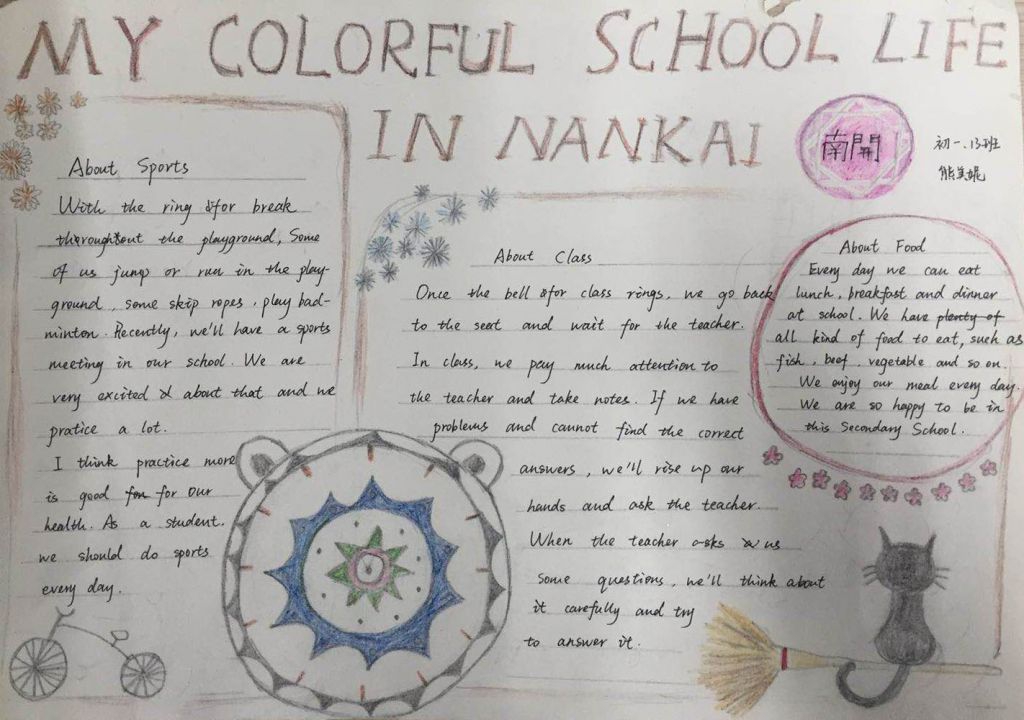 MY COLORFUL SCHOOL LIFE
IN NANKAI
南開
初一.13班
About Sports
With the ring for break
thoroughtout the playground, Some
of us jump or run in the play-
ground, some skip ropes, play bad-
minton. Recently, we'll have a sports
meeting in our school. We are
very excited about that and we
pratice a lot.
I think practice more
is good for our
health. As a student.
we should do sports
every day.
About Class
Once the bell for class rings, we go back
to the seat and wait for the teacher.
In class, we pay much attention to
the teacher and take notes. If we have
problems and cannot find the correct
answers, we'll rise up our
hands and ask the teacher.
When the teacher asks us
some questions, we'll think about
it carefully and try
to answer it.
About Food
Every day we can eat
lunch, breakfast and dinner
at school. We have plenty of
all kind of food to eat, such as
fish, beef, vegetable and so on.
We enjoy our meal every day.
We are so happy to be in
this Secondary School.